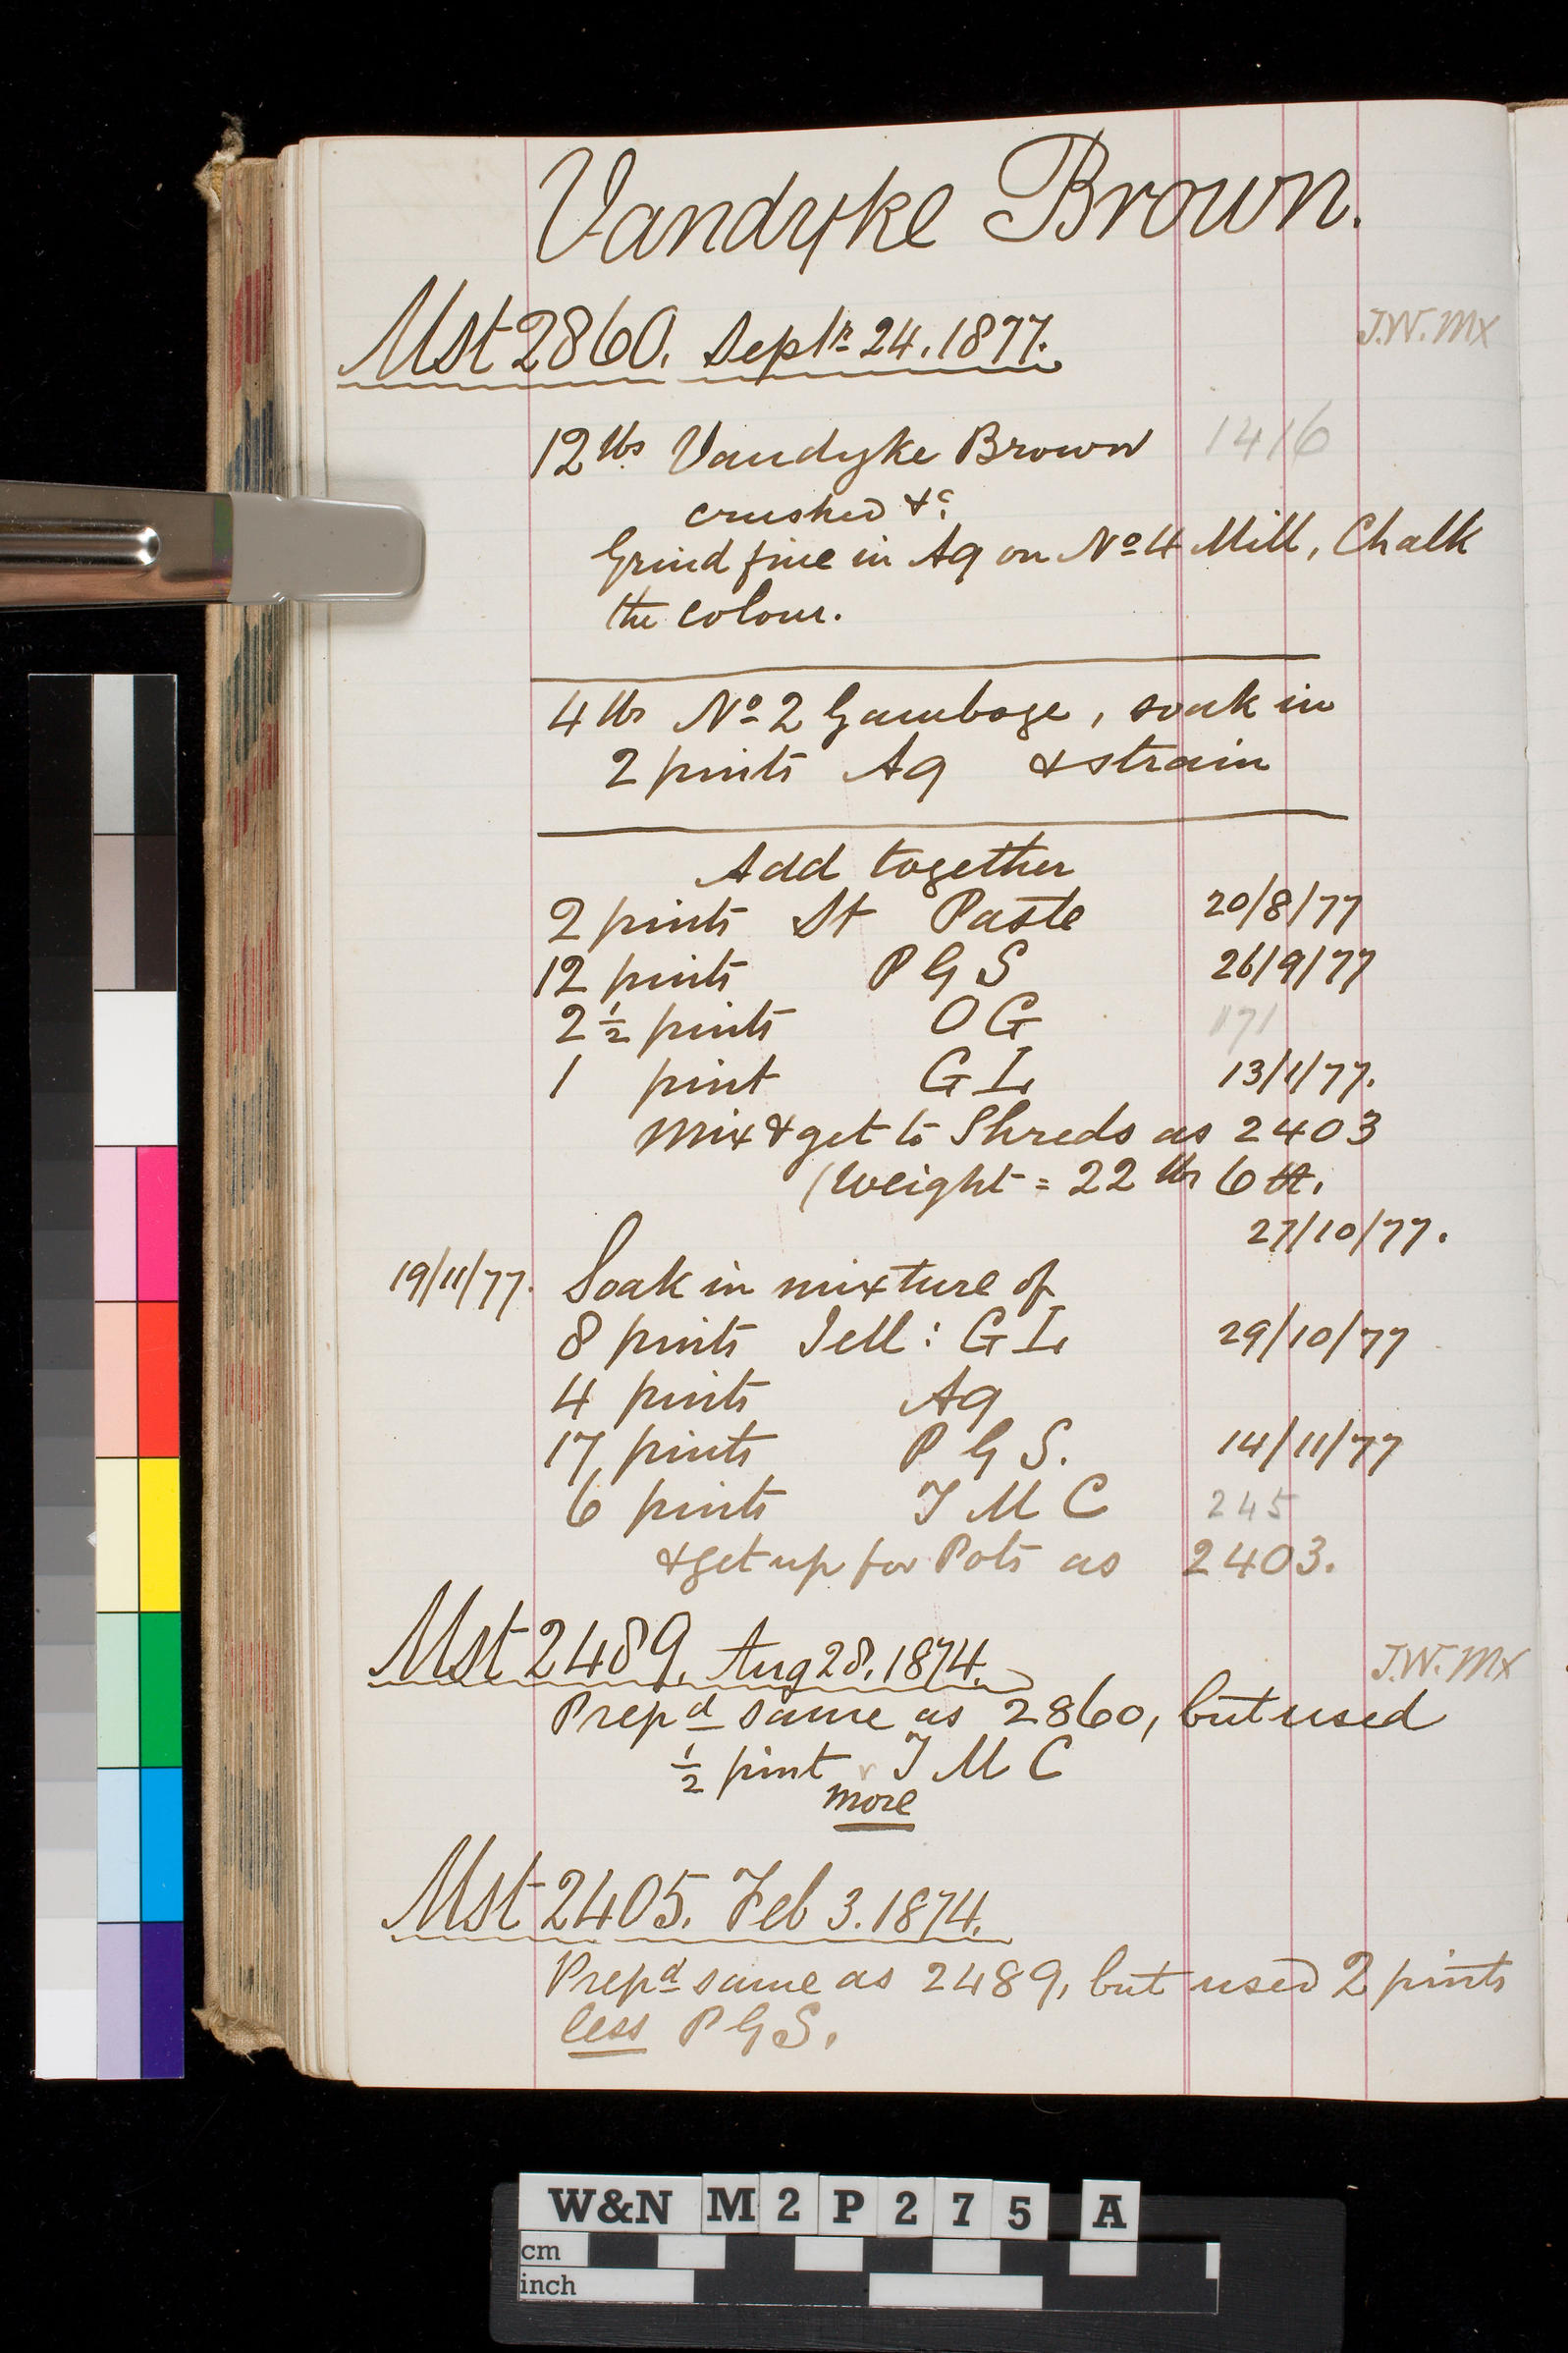 Vandyke Brown.
Mst 2860. Septr 24. 1877.
J.W. Mx
12 lbs Vandyke Brown 1416
crushed &c
Grind fine in Aq on No 4 Mill, Chalk
the colour.
4 lbs No 2 Gamboge, soak in
2 pints Aq & strain
Add together
2 pints St Paste 20/8/77
12 pints P G S 26/9/77
2 1/2 pints O G 1171
1 pint G L 13/11/77.
Mix & get to Shreds as 2403
(Weight = 22 lbs 6
27/10/77.
19/11/77. Soak in mixture of
8 pints Jell: G L 29/10/77
4 pints Aq
17 pints P G S. 14/11/77
6 pints T M C 245
& get up for Pots as 2403.
Mst 2489. Aug 28. 1874.
J.W. Mx
Prepd same as 2860, but used
1/2 pint T M C
more
Mst 2405. Feb 3. 1874.
Prepd same as 2489, but used 2 pints
less P G S.
W&N M 2 P 2 7 5 A
cm
inch